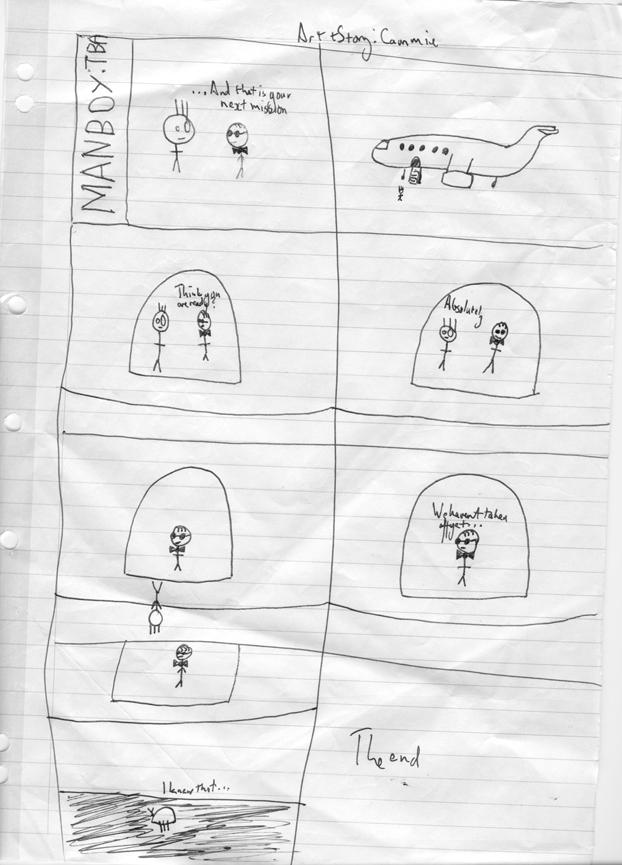 Art + Story: Cammie
MANBOY: TBA
...And that is your
next mission
Think you
are ready?
Absolutely
We havent taken
off yet...
I knew that...
The end